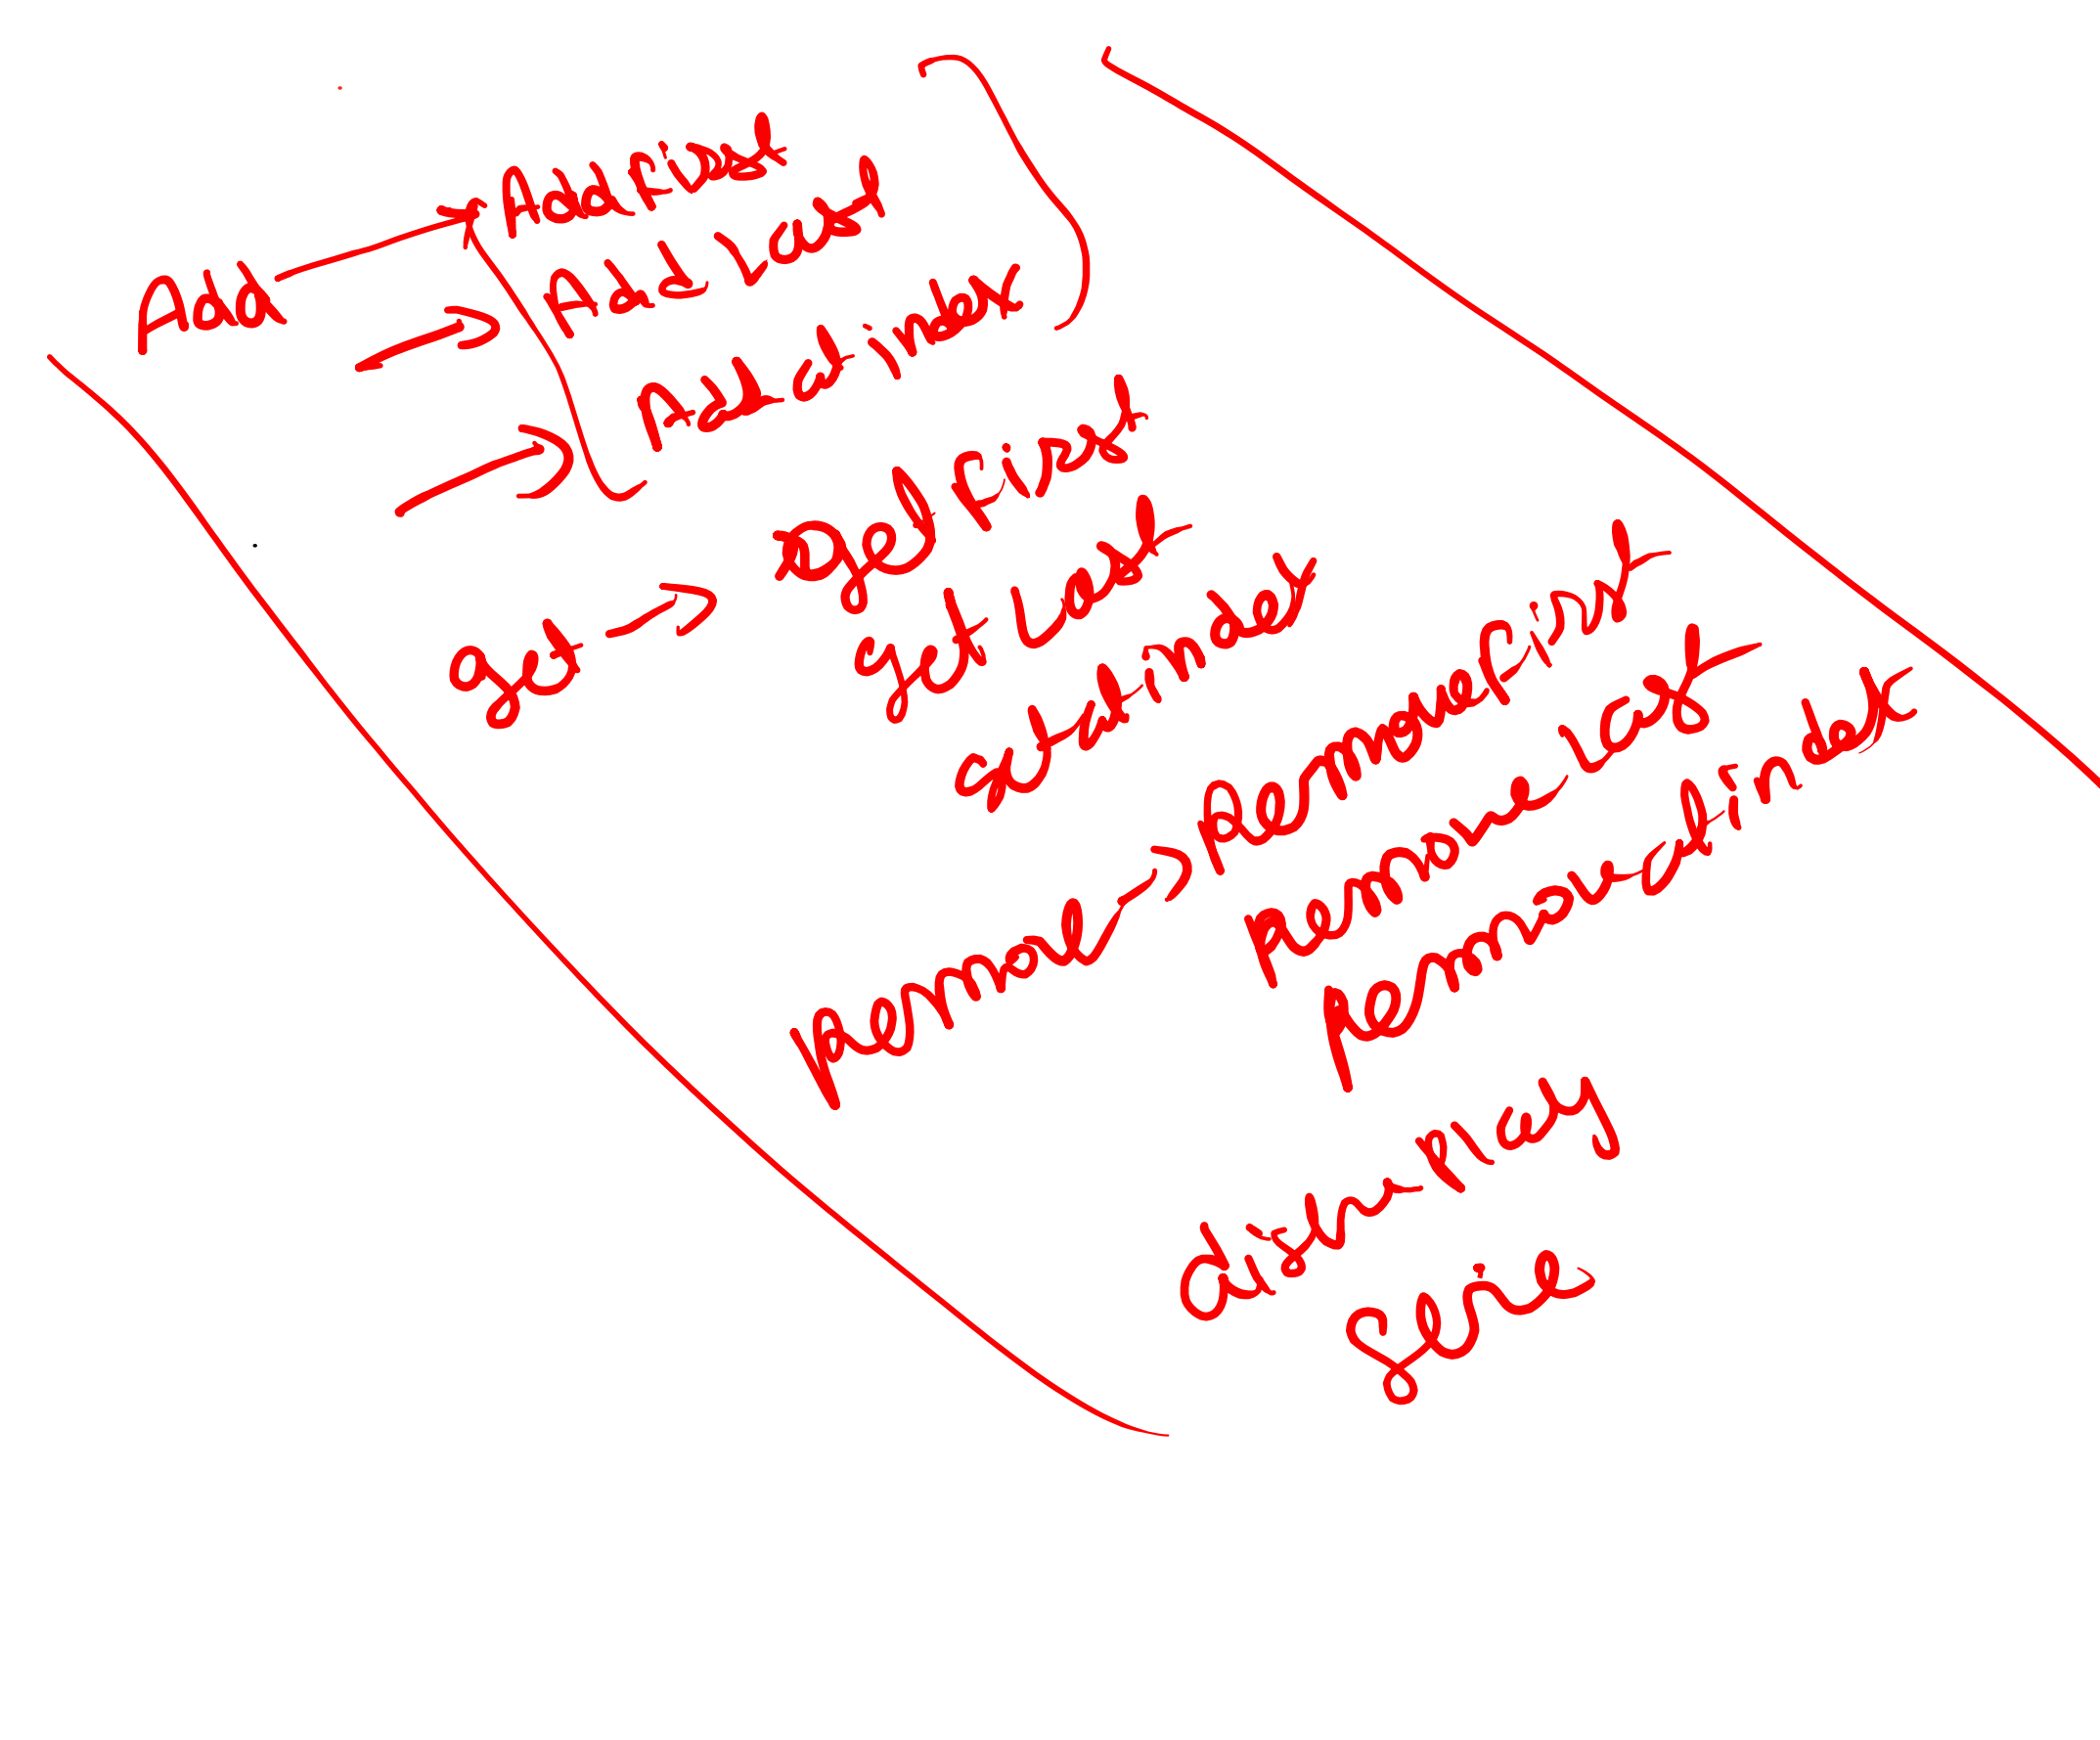 Add
Add First
Add Last
Add at index
get
get First
get Last
get at index
Remove
Remove First
Remove Last
Remove at index
display